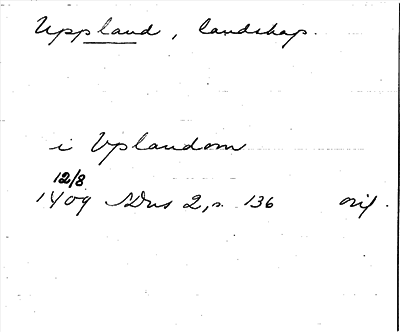 Uppland, landskap.
i Uplandom
12/8
1409 SDns 2, s. 136 orig.